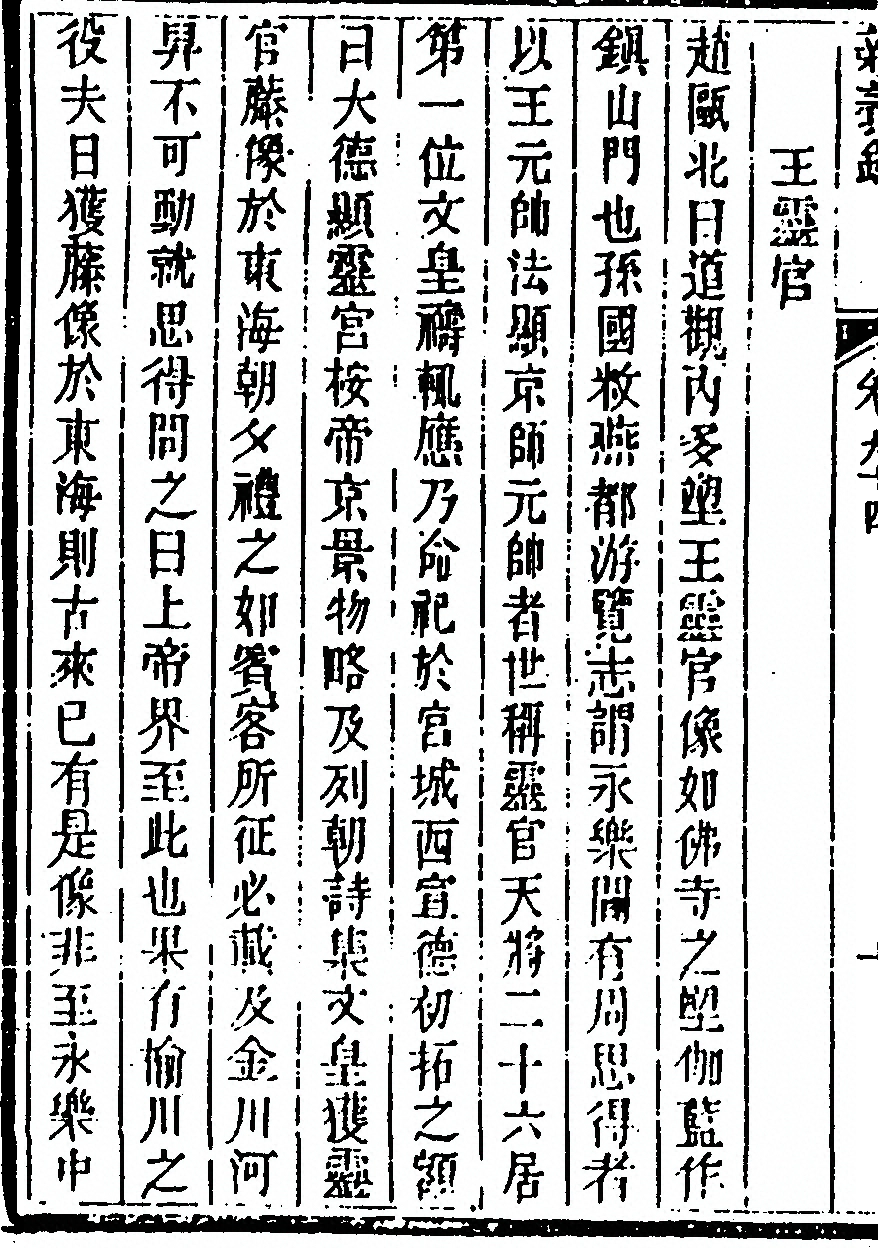 王靈官
趙甌北曰道觀內多塑王靈官像如佛寺之塑伽藍作
鎮山門也孫國敉燕都游覽志謂永樂間有周思得者
以王元帥法顯京師元帥者世稱靈官天將二十六居
第一位文皇禱輒應乃命祀於宮城西宣德初拓之額
曰大德顯靈宮桉帝京景物略及列朝詩集文皇獲靈
官藤像於東海朝夕禮之如賓客所征必載及金川河
舁不可動就思得問之曰上帝界至此也果有榆川之
役夫曰獲藤像於東海則古來已有是像非至永樂中
卷九十四